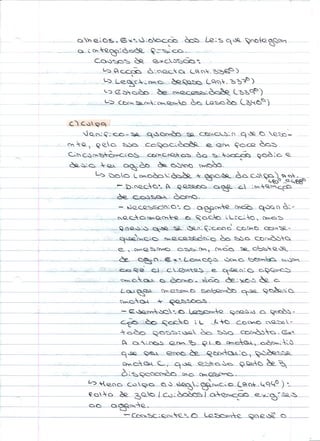 alheios. Ex: violação das leis que protegem
a integridade física.
Causas de exclusão:
↳ Acção directa (Art. 336º)
↳ Legítima defesa (Art. 337º)
↳ Estado de necessidade (339º)
↳ Consentimento do lesado (340º)
c) Culpa
Verifica-se quando se conclui que o lesan-
te, pela sua capacidade e em face das
circunstâncias concretas da situação podia e
devia ter agido de outro modo
↳ Dolo (modalidade + grave da culpa) Art.
- Directo: A pessoa age c/ intenção
de causar dano.
- Necessário: O agente não quer di-
rectamente o facto ilícito, mas
como conse-
quência necessária da sua conduta
e, mesmo assim, não se abstém
de agir. Ex: Lançar uma bomba num
café c/ clientes e querer apenas
matar o dono. Não deixa de a
lançar mesmo sabendo que poderia
matar + pessoas
- Eventual: O lesante previu a produ-
ção do facto ilícito como resul-
tado possível da sua conduta. Ex:
A atira em B p/ o matar, admitindo
que por erro de pontaria, pudesse
matar C, que estava perto de B
disparando na mesma.
↳ Mera culpa ou negligência (Art. 494º):
Falta de zelo/cuidados/atenção exigíveis
ao agente.
- Consciente: O lesante previu o